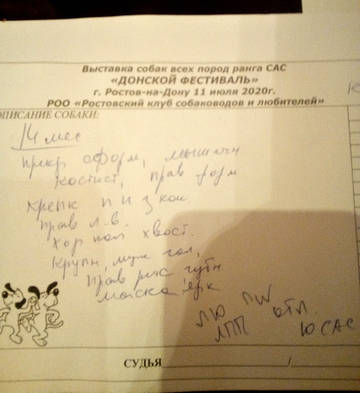 Выставка собак всех пород ранга САС
«ДОНСКОЙ ФЕСТИВАЛЬ»
г. Ростов-на-Дону 11 июля 2020г.
РОО «Ростовский клуб собаководов и любителей»
ОПИСАНИЕ СОБАКИ:
14 мес
прекр оформ,
костист, прав форм
крепк п и з кон.
прав л.в.
хор пол хвост.
Крупн, муж гол,
прав
маска ярк
ЛЮ PW отл
ЛПП ЮСАС
СУДЬЯ /